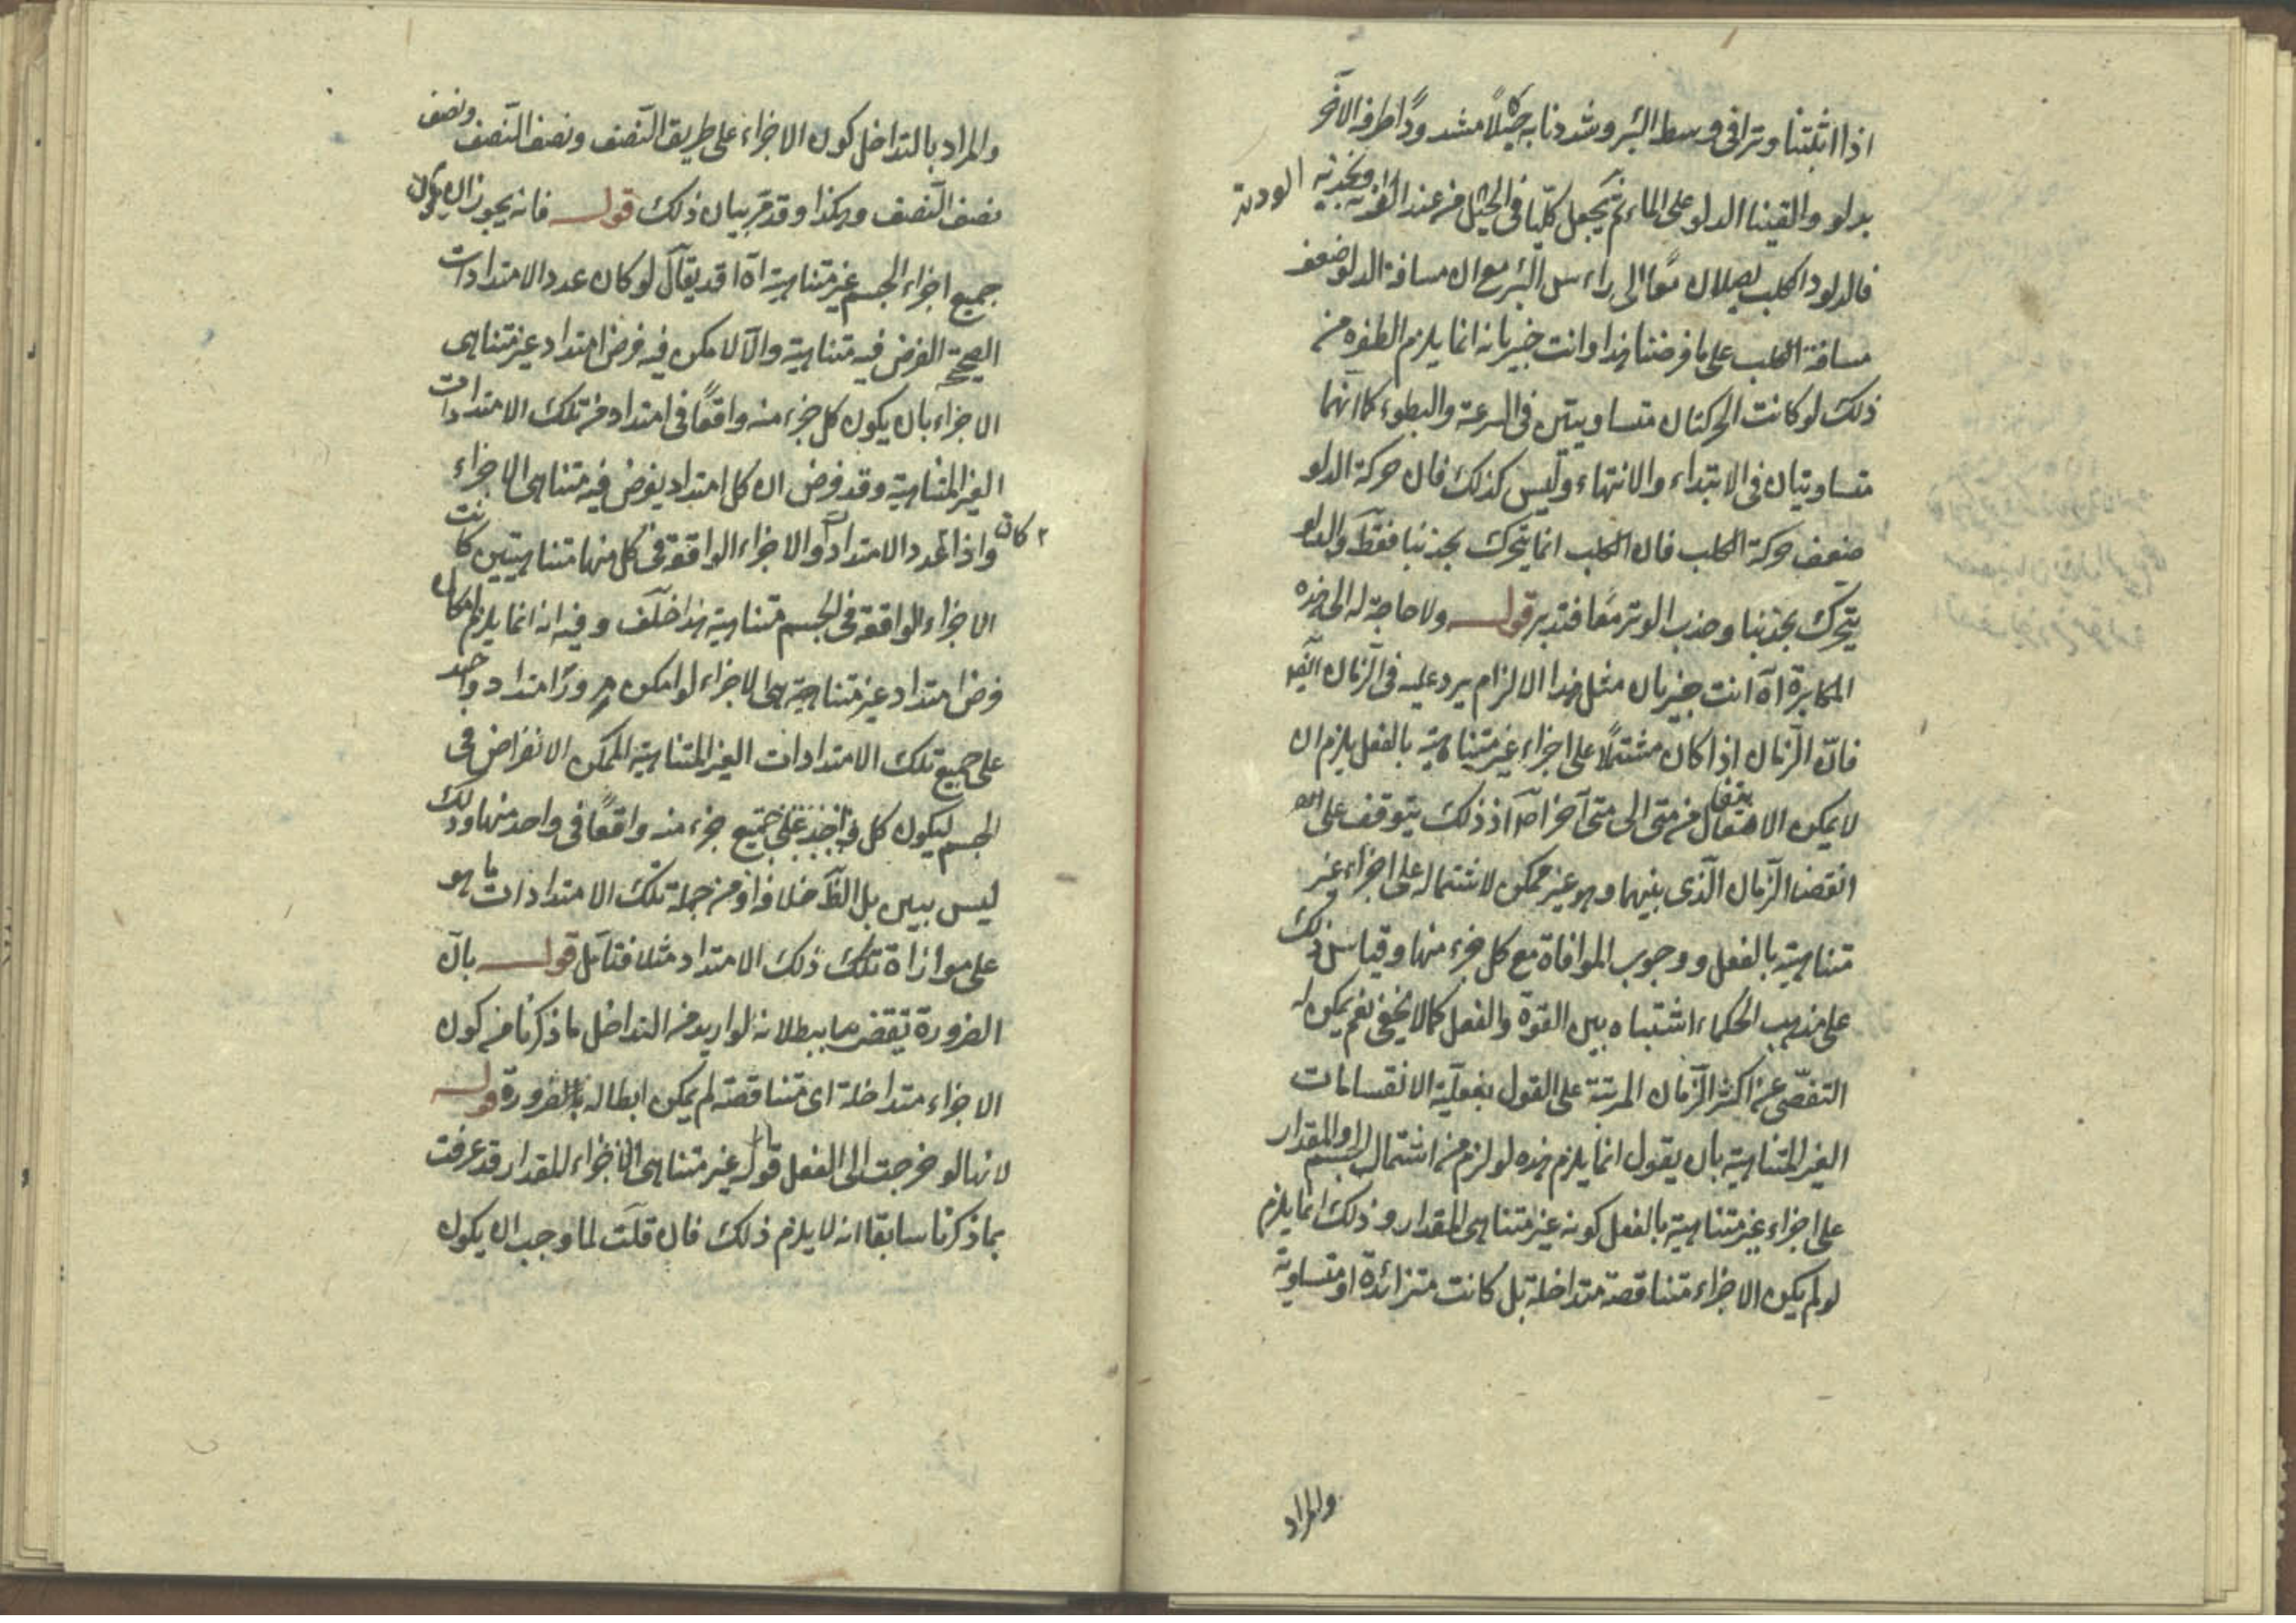 اذا اثبتنا وترا فى وسط البئر وشددنا به حبلاً مشدودًا طرفه الآخر
بدلو والقينا الدلو على الماء ثم نجعل كلّبا فى الحبل من عند الوتد ونجذبه
فالدلو والكلب يصلان معًا الى رأس البئر مع ان مسافة الدلو ضعف
مسافة الكلب على ما فرضنا هذا وانت خبير بانه انما يلزم الطفره من
ذلك لو كانت الحركتان متساويتين فى السرعة والبطوء كما انهما
متساويتان فى الابتداء والانتهاء وليس كذلك فان حركة الدلو
ضعف حركة الكلب فان الكلب انما يتحرك بجذبنا فقط والدلو
يتحرك بجذبنا وجذب الوتر معًا فتدبر قوله ولا حاجة له الى هذه
المكابرة اه انت خبير بان مثل هذا الالزام يرد عليه فى الزمان ايضا
فانّ الزمان اذا كان مشتملاً على اجزاء غير متناهية بالفعل يلزم ان
لا يمكن الانتقال من متى الى متى آخر اصلا اذ ذلك يتوقف على
انقضاء الزمان الذى بينهما وهو غير ممكن لاشتماله على اجزاء غير
متناهية بالفعل ووجوب الموافاة مع كل جزء منها وقياس ذلك
على مذهب الحكماء اشتباه بين القوة والفعل كما لا يخفى نعم يمكن له
التفصّى عن اكثر الزمان المرتبة على القول بفعلية الانقسامات
الغير المتناهية بان يقول انما يلزم هذه لو لزم من اشتمال الجسم او المقدار
على اجزاء غير متناهية بالفعل كونه غير متناهى المقدار وذلك انما يلزم
لو لم يكن الاجزاء متناقصة متداخلة بل كانت متزائدة او متساوية
والمراد
والمراد بالتداخل كون الاجزاء على طريق النصف ونصف النصف ونصف
نصف النصف وهكذا وقد مر بيان ذلك قوله فانه يجوز ان يكون
جميع اجزاء الجسم غير متناهية اه قد يقال لو كان عدد الامتدادات
الصحيحة الفرض فيه متناهية والا لامكن فيه فرض امتداد غير متناهى
الاجزاء بان يكون كل جزء منه واقعًا فى امتداد من تلك الامتدادات
الغير المتناهية وقد فرض ان كل امتداد يفرض فيه متناهى الاجزاء
واذا كان عدد الامتدادات والاجزاء الواقعة فى كل منها متناهيتين كانت
الاجزاء الواقعة فى الجسم متناهية هذا خلف وفيه انه انما يلزم امكان
فرض امتداد غير متناهى الاجزاء لو امكن مرور امتداد واحد
على جميع تلك الامتدادات الغير المتناهية الممكن الانفراض فى
الجسم ليكون كل جزء منه واقعًا فى واحد منها وذلك
ليس ببين بل الظ خلافه اذ من جملة تلك الامتدادات ما هو
على موازاة ذلك الامتداد مثلا فتأمل قوله بان
الضرورة تقضى ببطلانه لو اريد من التداخل ما ذكرنا من كون
الاجزاء متداخلة اى متناقصة لم يمكن ابطاله بالضرورة قوله
لانها لو خرجت الى الفعل قوله غير متناهى الاجزاء للمقدار قد عرفت
بما ذكرنا سابقا انه لا يلزم ذلك فان قلت لما وجب ان يكون